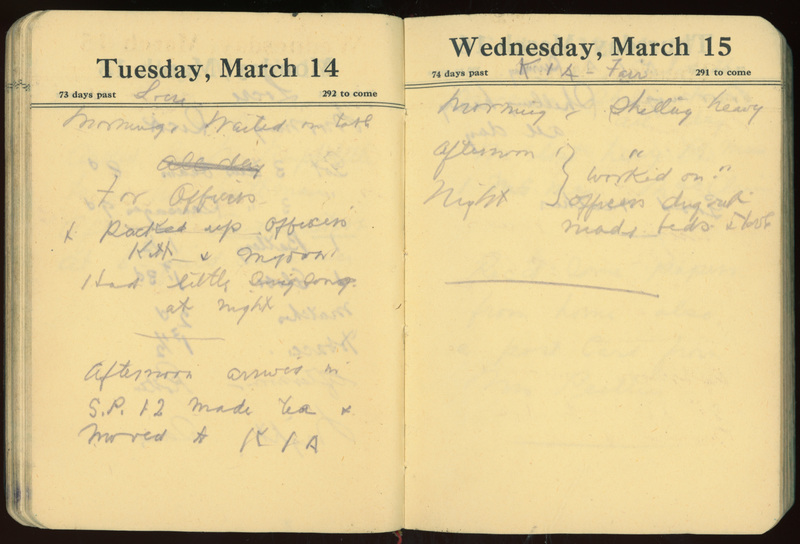 Tuesday, March 14
73 days past 292 to come
Locre
Morning. Waited on table
All day
For Officers
& Packed up officers
Kit & my own
Had little singsong
at night
Afternoon arrives in
S.P. 12 made tea &
Moved to K 1 A
Wednesday, March 15
74 days past 291 to come
K 1 A - Fair
Morning - Shelling heavy
Afternoon } "
Night worked on "
officers dug out
made beds &